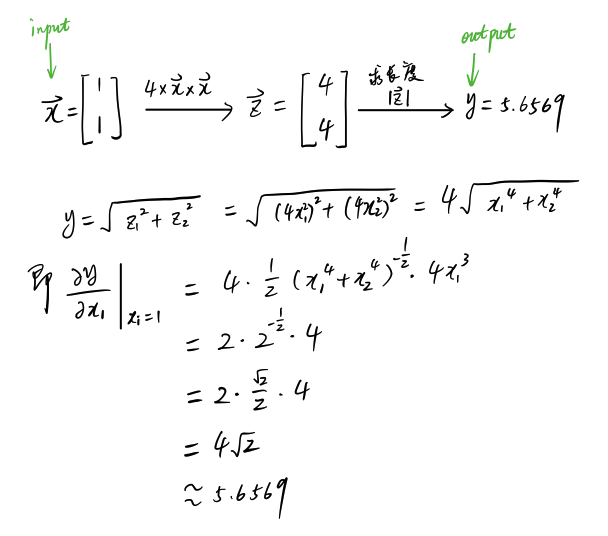 input
output
x⃗ = [1 1] 4×x⃗×x⃗ → z⃗ = [4 4] 求长度 |z⃗| → y = 5.6569
y = √(z₁² + z₂²) = √((4x₁²)² + (4x₂²)²) = 4√(x₁⁴ + x₂⁴)
即 ∂y/∂x₁ |xᵢ=1 = 4 · 1/2 (x₁⁴ + x₂⁴)^(-1/2) · 4x₁³
= 2 · 2^(-1/2) · 4
= 2 · √2/2 · 4
= 4√2
≈ 5.6569